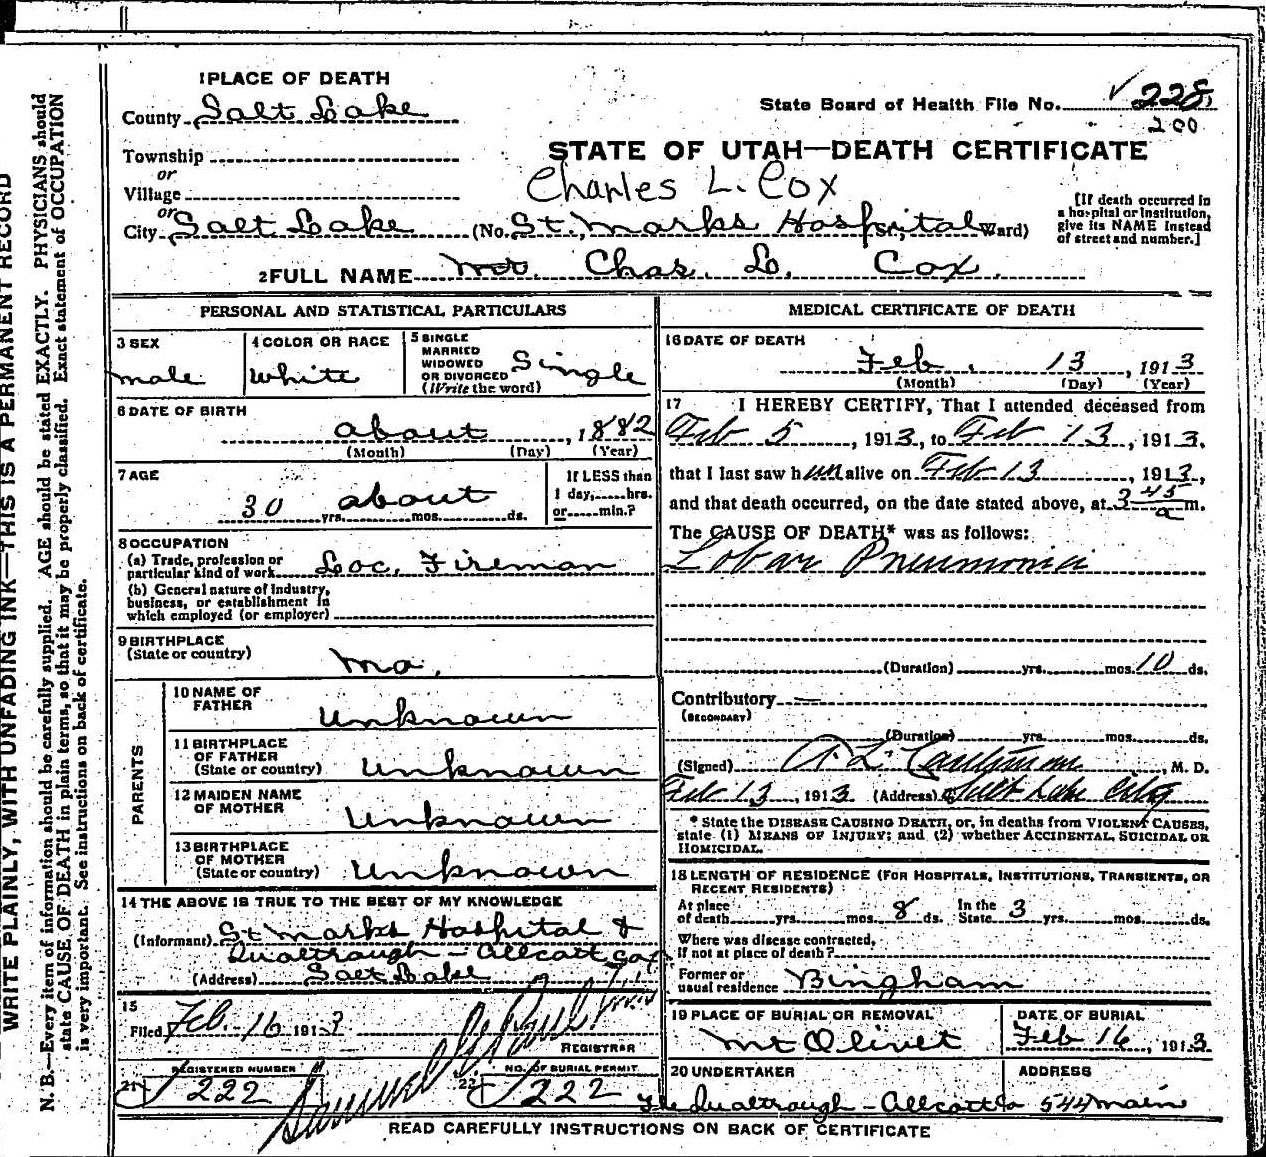 1 PLACE OF DEATH
County Salt Lake
State Board of Health File No. 228
200
Township
or
STATE OF UTAH—DEATH CERTIFICATE
Village
Charles L. Cox
or
City Salt Lake (No. St. Marks Hospital Ward)
[If death occurred in
a hospital or institution,
give its NAME instead
of street and number.]
2 FULL NAME Mr. Chas. L. Cox.
PERSONAL AND STATISTICAL PARTICULARS
3 SEX
male
4 COLOR OR RACE
White
5 SINGLE
MARRIED
WIDOWED
OR DIVORCED
(Write the word)
Single
6 DATE OF BIRTH
about, 1882
(Month) (Day) (Year)
7 AGE
30 yrs. about mos. ds.
If LESS than
1 day, hrs.
or min.?
8 OCCUPATION
(a) Trade, profession or
particular kind of work Loc. Fireman
(b) General nature of industry,
business, or establishment in
which employed (or employer)
9 BIRTHPLACE
(State or country)
Mo.
PARENTS
10 NAME OF
FATHER
Unknown
11 BIRTHPLACE
OF FATHER
(State or country) Unknown
12 MAIDEN NAME
OF MOTHER
Unknown
13 BIRTHPLACE
OF MOTHER
(State or country) Unknown
14 THE ABOVE IS TRUE TO THE BEST OF MY KNOWLEDGE
(Informant) St Marks Hospital &
Qualtrough - Allcott Co
(Address) Salt Lake
15
Filed Feb. 16 1913
REGISTRAR
21 REGISTERED NUMBER
222
22 NO. OF BURIAL PERMIT
222
MEDICAL CERTIFICATE OF DEATH
16 DATE OF DEATH
Feb. 13, 1913
(Month) (Day) (Year)
17 I HEREBY CERTIFY, That I attended deceased from
Feb 5, 1913, to Feb 13, 1913.
that I last saw him alive on Feb 13, 1913,
and that death occurred, on the date stated above, at 3 45 a m.
The CAUSE OF DEATH* was as follows:
Lobar Pneumonia
(Duration) yrs. mos. 10 ds.
Contributory —
(SECONDARY)
(Duration) yrs. mos. ds.
(Signed) M. D.
Feb 13, 1913 (Address) Salt Lake City
* State the DISEASE CAUSING DEATH, or, in deaths from VIOLENT CAUSES,
state (1) MEANS OF INJURY; and (2) whether ACCIDENTAL, SUICIDAL OR
HOMICIDAL.
18 LENGTH OF RESIDENCE (FOR HOSPITALS, INSTITUTIONS, TRANSIENTS, OR
RECENT RESIDENTS)
At place
of death yrs. mos. 8 ds.
In the
State 3 yrs. mos. ds.
Where was disease contracted,
if not at place of death?
Former or
usual residence Bingham
19 PLACE OF BURIAL OR REMOVAL
Mt Olivet
DATE OF BURIAL
Feb 16, 1913
20 UNDERTAKER
The Qualtrough - Allcott Co
ADDRESS
544 Main
READ CAREFULLY INSTRUCTIONS ON BACK OF CERTIFICATE
WRITE PLAINLY, WITH UNFADING INK—THIS IS A PERMANENT RECORD
N. B.—Every item of information should be carefully supplied. AGE should be stated EXACTLY. PHYSICIANS should
state CAUSE OF DEATH in plain terms, so that it may be properly classified. Exact statement of OCCUPATION
is very important. See instructions on back of certificate.